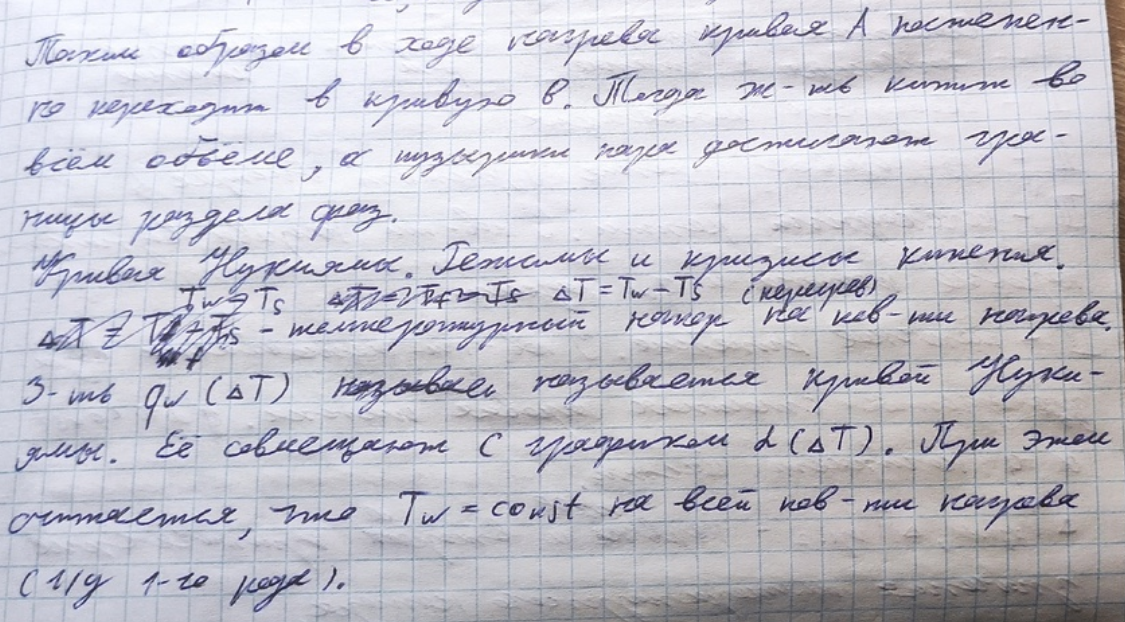 Таким образом в ходе нагрева кривая А постепен-
но переходит в кривую В. Тогда ж-ть кипит во
всём объёме, а пузырьки пара достигают гра-
ницы раздела фаз.
Кривая Нукиямы. Режимы и кризисы кипения.
Tw > Ts ΔT = Tw - Ts (перегрев)
- температурный напор на пов-ти нагрева.
З-ть qw (ΔT) называется кривой Нуки-
ямы. Её совмещают с графиком α(ΔT). При этом
считается, что Tw = const на всей пов-ти нагрева
(г/у 1-го рода).